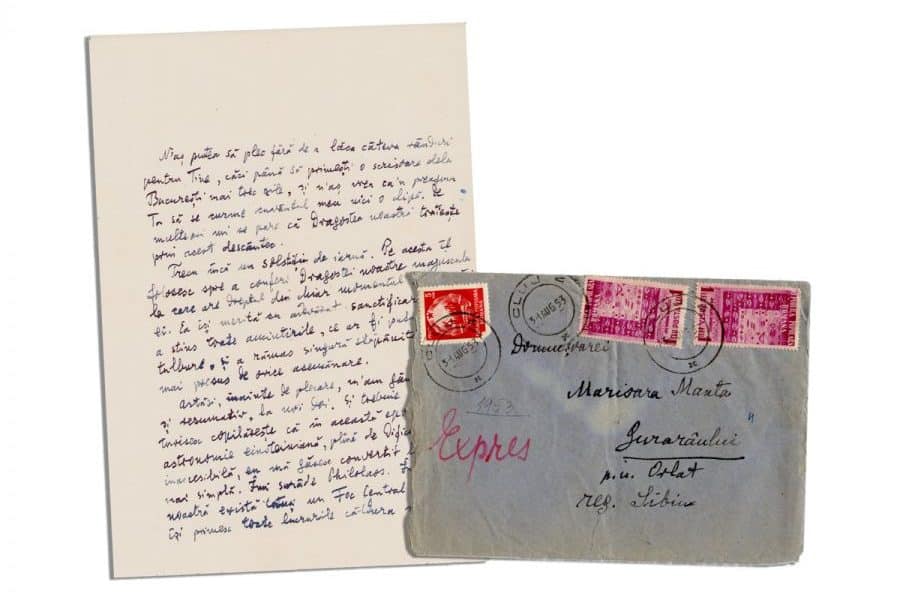 N'aș putea să plec fără de a lăsa câteva rânduri
pentru Tine, căci până să primești o scrisoare dela
București mai trec zile, și n'aș vrea ca'n preajma
Ta să se curme cuvântul meu nici o clipă. De
multe ori mi se pare că Dragostea noastră trăiește
prin acest descântec.
Trecu încă un solstițiu de iarnă. Pe acesta Îl
folosesc spre a conferi Dragostei noastre majuscula
la care are dreptul din chiar momentul
ei. Ea își merită cu adevărat sanctificar
a stins toate amintirile, ce ar fi pu
tulbure, și a rămas singură stăpân
mai presus de orice asemănare.
Astăzi, înainte de plecare, m'am gân
și rezumativ, la noi doi. Și trebuie
copilărește că în această
astronomie einsteiniană, plină de
inaccesibilă, eu mă găsesc convertit
mai simplă. Îmi surâde Philolaos.
noastră există un Foc Central
își primesc toate lucrurile căldura
CLUJ
3-1 AUG 53
CLUJ
3-1 AUG 53
Domnișoarei
Marisara Manta
1953
Expres
Gurarâului
p.u. Orlat
reg. Sibiu